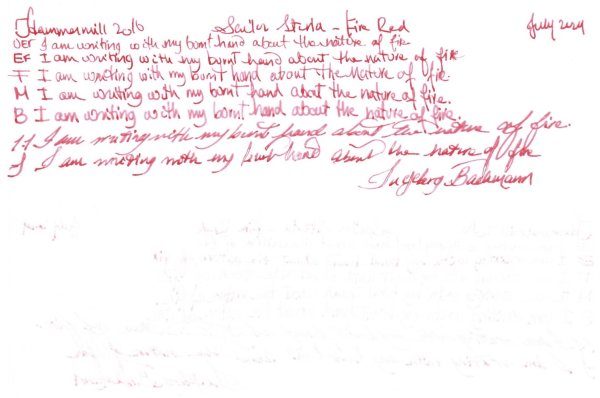 Hammermill 20lb Sailor Studio - Fire Red July 2024
UEF I am writing with my burnt hand about the nature of fire
EF I am writing with my burnt hand about the nature of fire
F I am writing with my burnt hand about the nature of fire.
M I am writing with my burnt hand about the nature of fire.
B I am writing with my burnt hand about the nature of fire.
I am writing with my burnt hand about the nature of fire.
I am writing with my burnt hand about the nature of fire
Ingeborg Bachmann